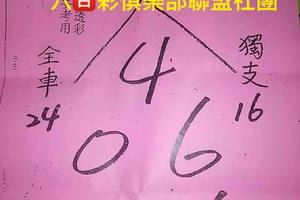 六合彩俱樂部聯盟社團
透彩
考用
全車
24
獨支
16
4
0 6